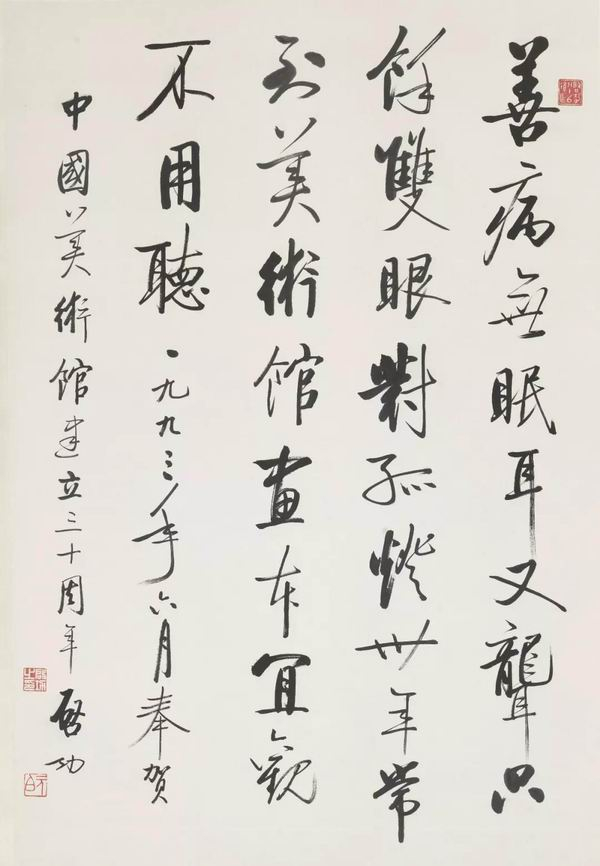 善病無眠耳又聾只
餘雙眼對孤燈卅年常
到美術館畫本宜觀
不用聽 一九九三年六月奉賀
中國美術館建立三十周年 啓功